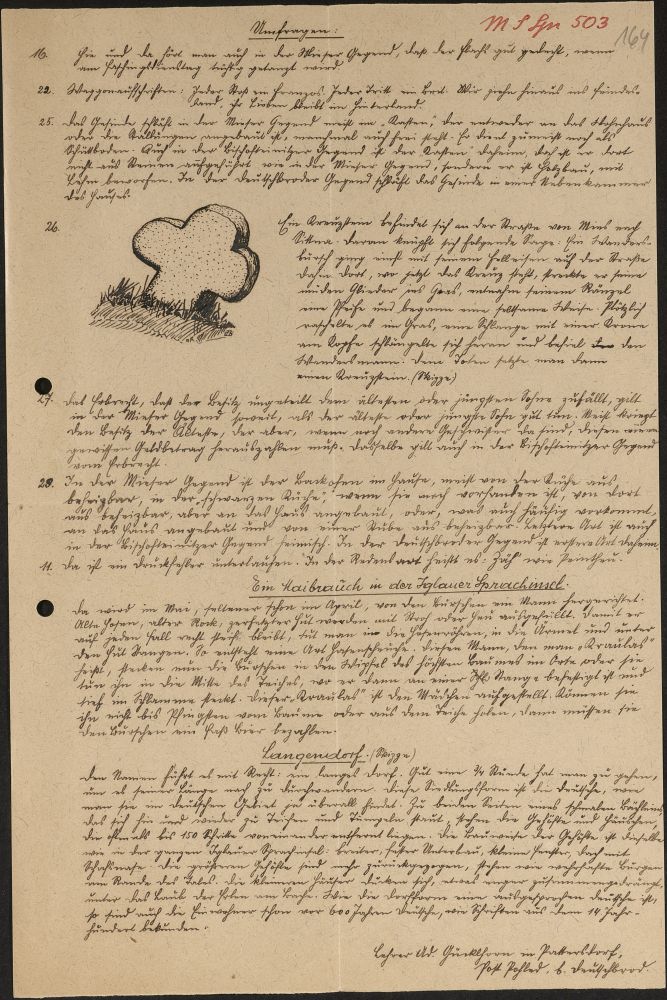 Umfragen:
M S Spr 503
164
16. Hie und da hört man auch in der Mieser Gegend, daß der Flachs gut gedeiht, wenn
am Faschingsdienstag tüchtig getanzt wird.
22. Waggonaufschriften: Jeder Stoß ein Franzos. Jeder Tritt ein Brit. Wir ziehn hinaus ins Feindes-
land, ihr Lieben bleibt im Hinterland.
25. Das Gesinde schläft in der Mieser Gegend meist im "Kasten", der entweder an das Wohnhaus
oder die Stallungen angebaut ist, manchmal auch frei steht. Er dient zumeist noch als
Schüttboden. Auch in der Bischofteinitzer Gegend ist der Kasten daheim, doch ist er dort
nicht aus Steinen aufgeführt wie in der Mieser Gegend, sondern er ist Holzbau, mit
Lehm beworfen. In der Deutschbroder Gegend schläft das Gesinde in einer Nebenkammer
des Hauses.
26. Ein Kreuzstein befindet sich an der Straße von Mies nach
Sittna. Daran knüpft sich folgende Sage: Ein Wanders-
bursch ging einst mit seinem Felleisen auf der Straße
dahin. Dort, wo jetzt das Kreuz steht, streckte er seine
müden Glieder ins Gras, entnahm seinem Ränzel
eine Pfeife und begann eine seltsame Weise. Plötzlich
raschelte es im Gras, eine Schlange mit einer Krone
am Kopfe schlängelte sich heran und befiel den
Wandersmann. Dem Toten setzte man dann
einen Kreuzstein. (Skizze)
27. Das Erbrecht, daß der Besitz ungeteilt dem ältesten oder jüngsten Sohne zufällt, gilt
in der Mieser Gegend soweit, als der älteste oder jüngste Sohn gut tun. Meist kriegt
den Besitz der Älteste, der aber, wenn noch andere Geschwister da sind, diesen einen
gewissen Geldbetrag herauszahlen muß. Dasselbe gilt auch in der Bischofteinitzer Gegend
vom Erbrecht.
28. In der Mieser Gegend ist der Backofen im Hause, meist von der Küche aus
beheizbar, in der "schwarzen Küche", wenn sie noch vorhanden ist, von dort
aus beheizbar, aber an das Haus angebaut, oder, was auch häufig vorkommt,
an das Haus angebaut und von einer Stube aus beheizbar. Letztere Art ist auch
in der Bischofteinitzer Gegend heimisch. In der Deutschbroder Gegend ist erstere Art daheim.
11. Da ist ein Druckfehler unterlaufen. In der Redensart heißt es: Zäh wie
Ein Maibrauch in der Iglauer Sprachinsel.
Da wird im Mai, seltener schon im April, von den Burschen ein Mann hergerichtet.
Alte Hosen, alter Rock, zerfetzter Hut werden mit Stroh oder Heu ausgefüllt. Damit er
auf jeden Fall recht steif bleibt, tut man in die Hosenröhren, in die Ärmel und unter
den Hut Stangen. So entsteht eine Art Vogelscheuche. Diesen Mann, den man "Kraulas"
heißt, stecken nun die Burschen in den Wipfel des höchsten Baumes im Orte oder sie
tun ihn in die Mitte des Teiches, wo er dann an einer Stange befestigt ist und
tief im Schlamme steckt. Dieser "Kraulas" ist den Mädchen aufgestellt. Können sie
ihn nicht bis Pfingsten vom Baume oder aus dem Teiche holen, dann müssen sie
den Burschen ein Faß Bier bezahlen.
Langendorf. (Skizze)
Den Namen führt es mit Recht: ein langes Dorf. Gut eine 3/4 Stunde hat man zu gehen,
um es seiner Länge nach zu durchwandern. Diese Siedlungsform ist die deutsche, wie
man sie im deutschen Gebiet ja überall findet. Zu beiden Seiten eines schmalen Bächleins,
das sich hin und wieder zu Teichen und Tümpeln staut, stehen die Gehöfte und Häuschen,
die oftmals bis 150 Schritte voneinander entfernt liegen. Die Bauweise der Gehöfte ist dieselbe
wie in der ganzen Iglauer Sprachinsel: breiter, fester Unterbau, kleine Fenster, Dach mit
Schopfnase. Die größeren Gehöfte sind mehr zurückgezogen, stehen wie Burgen
am Rande des Tales. Die kleineren Häuser ducken sich, etwas enger zusammengedrängt,
unter das Laub der Erlen am Bache. Wie die Dorfform eine ausgesprochen deutsche ist,
so sind auch die Einwohner schon vor 600 Jahren Deutsche, wie Schriften aus dem 14. Jahr-
hundert bekunden.
Lehrer Ad. Gücklhorn in Pattersdorf,
Post Pohled, b. Deutschbrod.